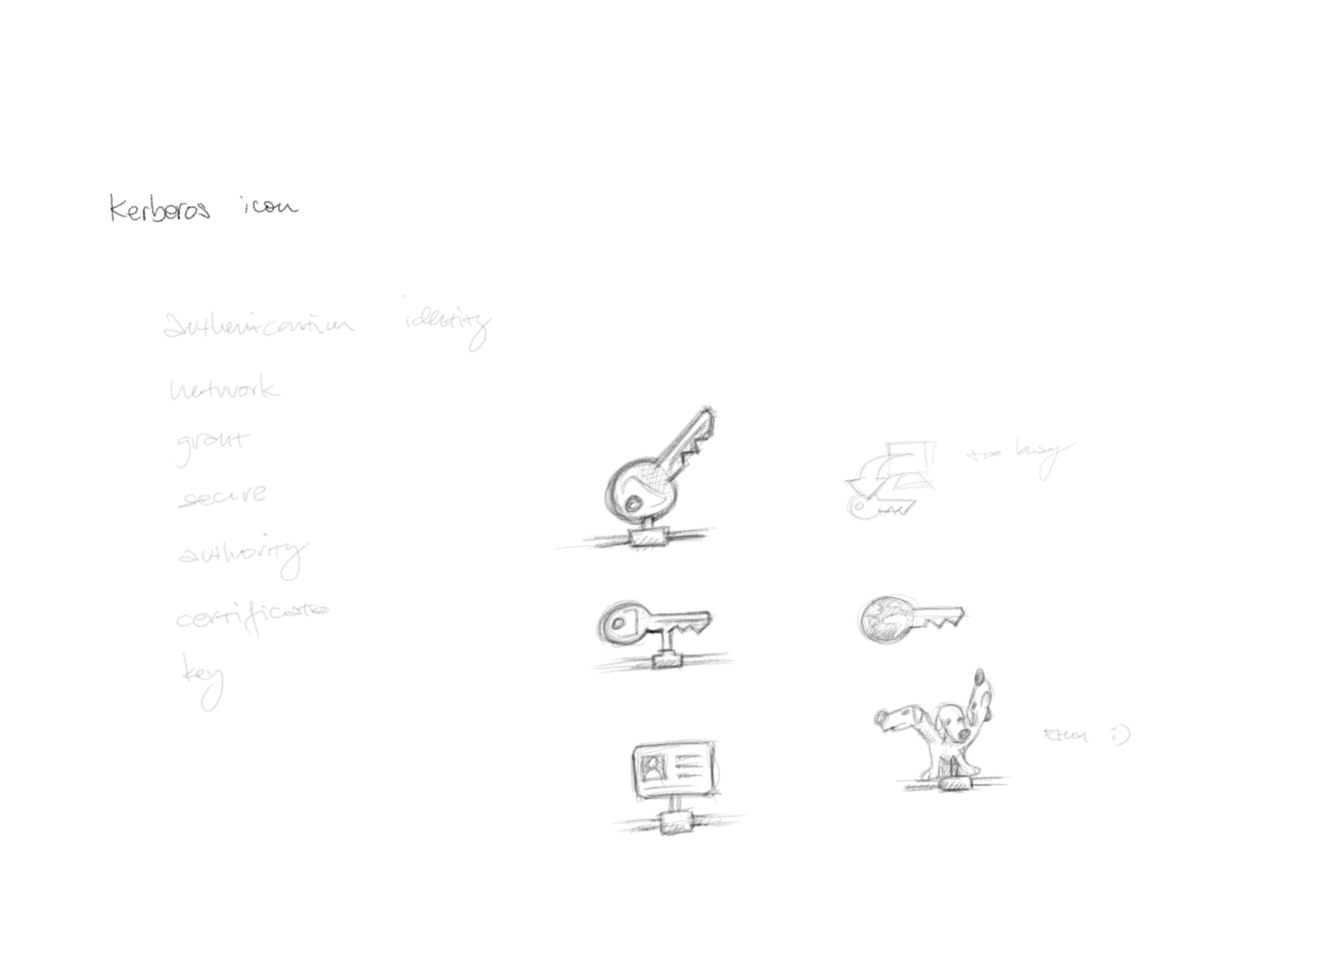 Kerberos icon
authenication identity
network
grant
secure
authority
certificate
key
too busy
:)